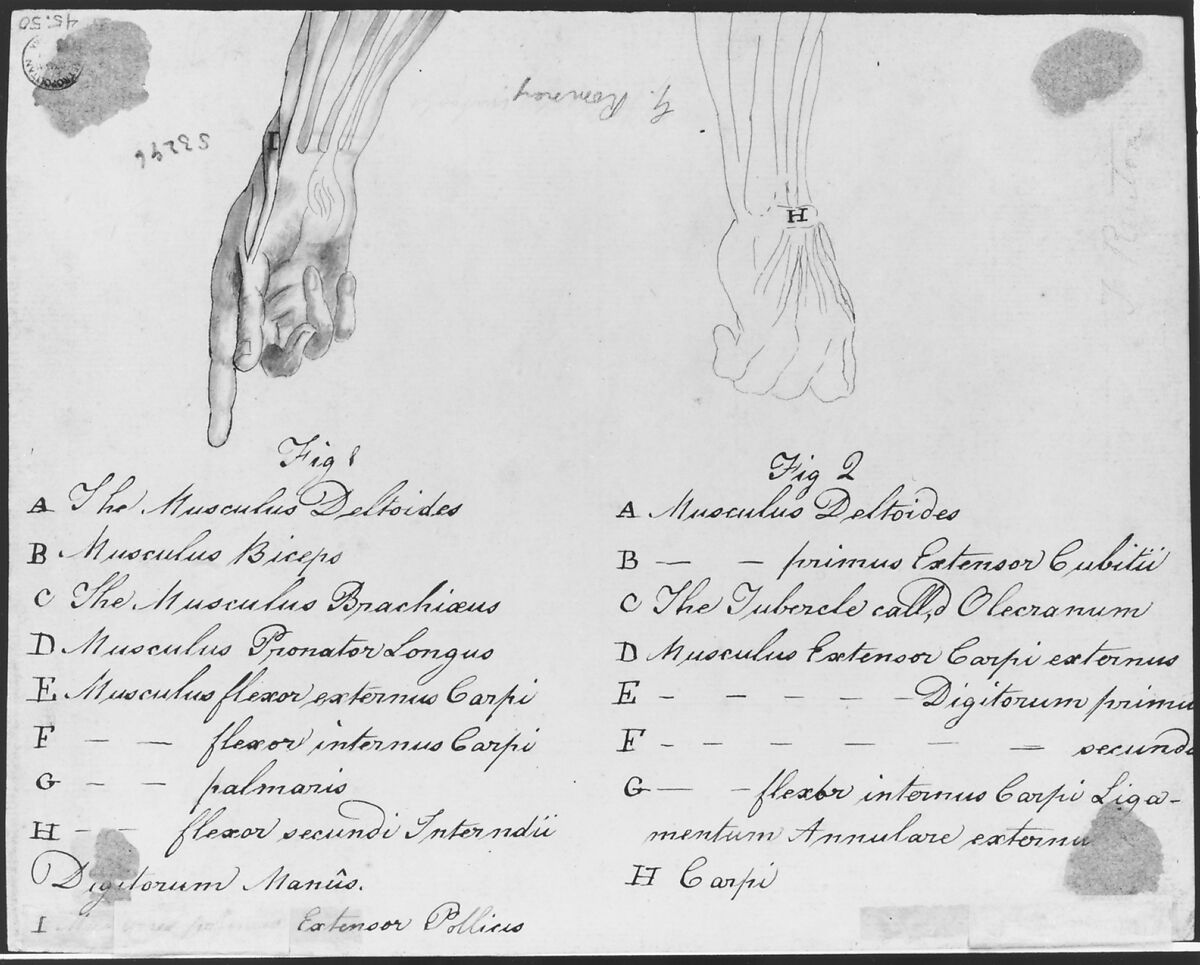 45.50
53296
G. Romney
I
H
Fig 1
A The Musculus Deltoides
B Musculus Biceps
C The Musculus Brachixus
D Musculus Pronator Longus
E Musculus flexor externus Carpi
F — — flexor internus Carpi
G — — palmaris
H — — flexor secundi Interndii
Digitorum Manûs.
I Extensor Pollicis
Fig 2
A Musculus Deltoides
B — — primus Extensor Cubitii
C The Tubercle call,d Olecranum
D Musculus Extensor Carpi externus
E - - - - - Digitorum primu
F - - - - - - secundo
G — - flexor internus Carpi Liga-
mentum Annulare externu
H Carpi